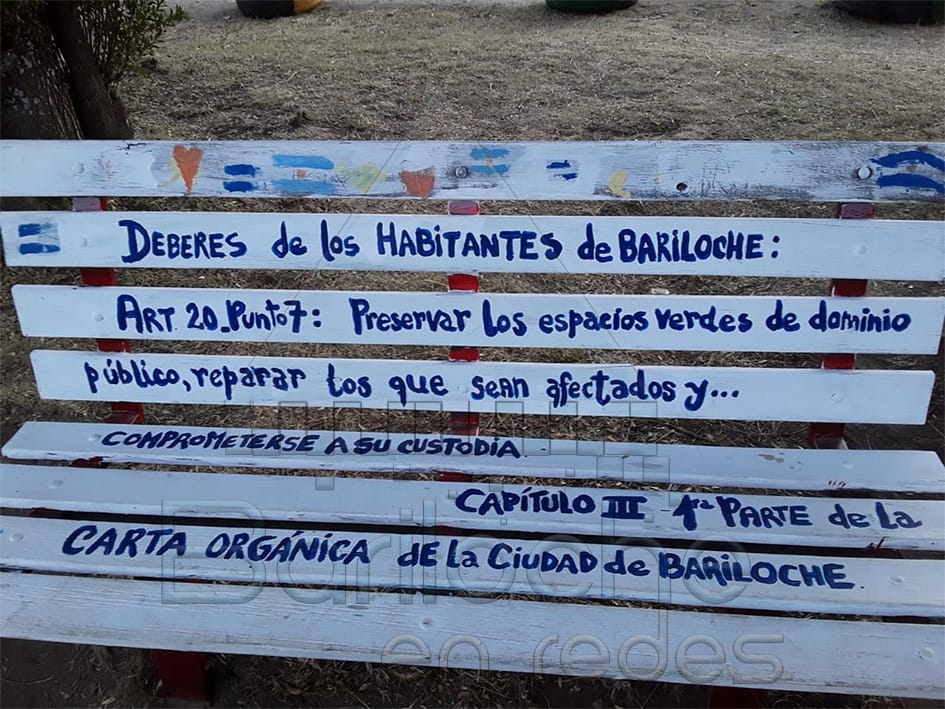 DEBERES de los HABiTANTES de BARiLOCHE:
ART. 20. Punto 7: Preservar los espacios verdes de dominio
público, reparar los que sean afectados y...
COMPROMETERSE A SU CUSTODIA.
CAPÍTULO III 1ra PARTE de La
CARTA ORGÁNiCA dE La CiUDAD de BARiLOCHE.
Bariloche
en redes